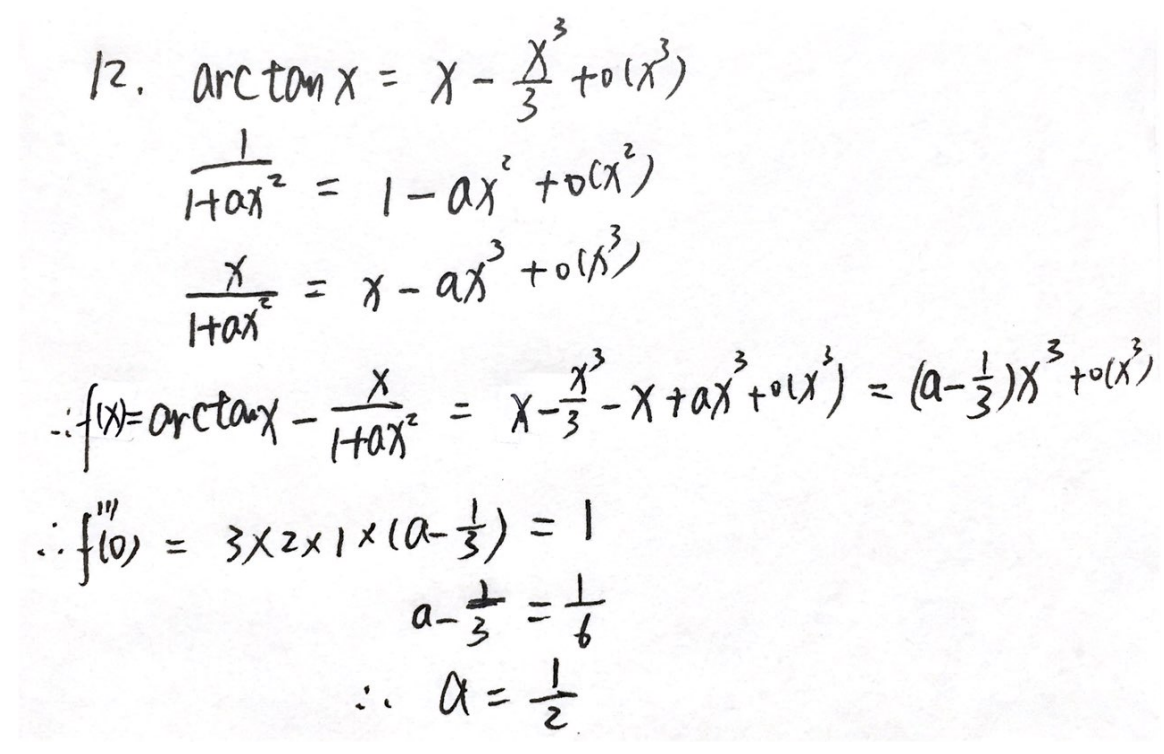 12. arctan x = x - x³/3 + o(x³)
1/(1+ax²) = 1 - ax² + o(x²)
x/(1+ax²) = x - ax³ + o(x³)
∴ f(x) = arctan x - x/(1+ax²) = x - x³/3 - x + ax³ + o(x³) = (a - 1/3)x³ + o(x³)
∴ f'''(0) = 3×2×1×(a - 1/3) = 1
a - 1/3 = 1/6
∴ a = 1/2